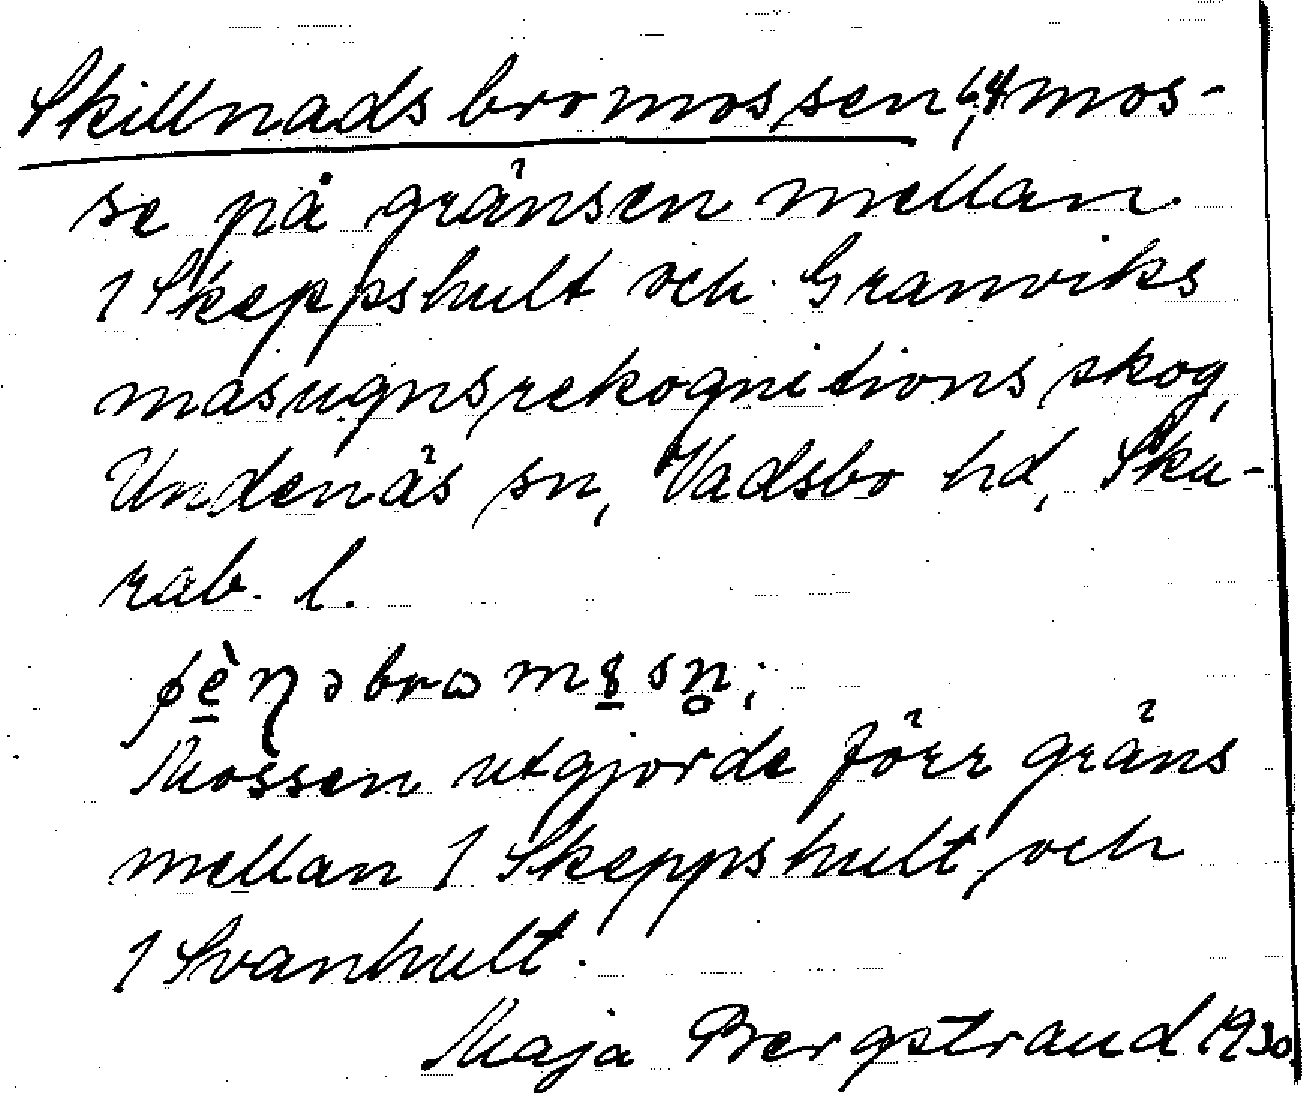 Skillnadsbromossen, 64 mos-
se på gränsen mellan
1 Skeppshult och Granviks
masugnsrekognitionsskog,
Undenäs sn, Vadsbo hd, Ska-
rab. l.
Mossen utgjorde förr gräns
mellan 1 Skeppshult och
1 Svanhult.
Maja Bergstrand 1930